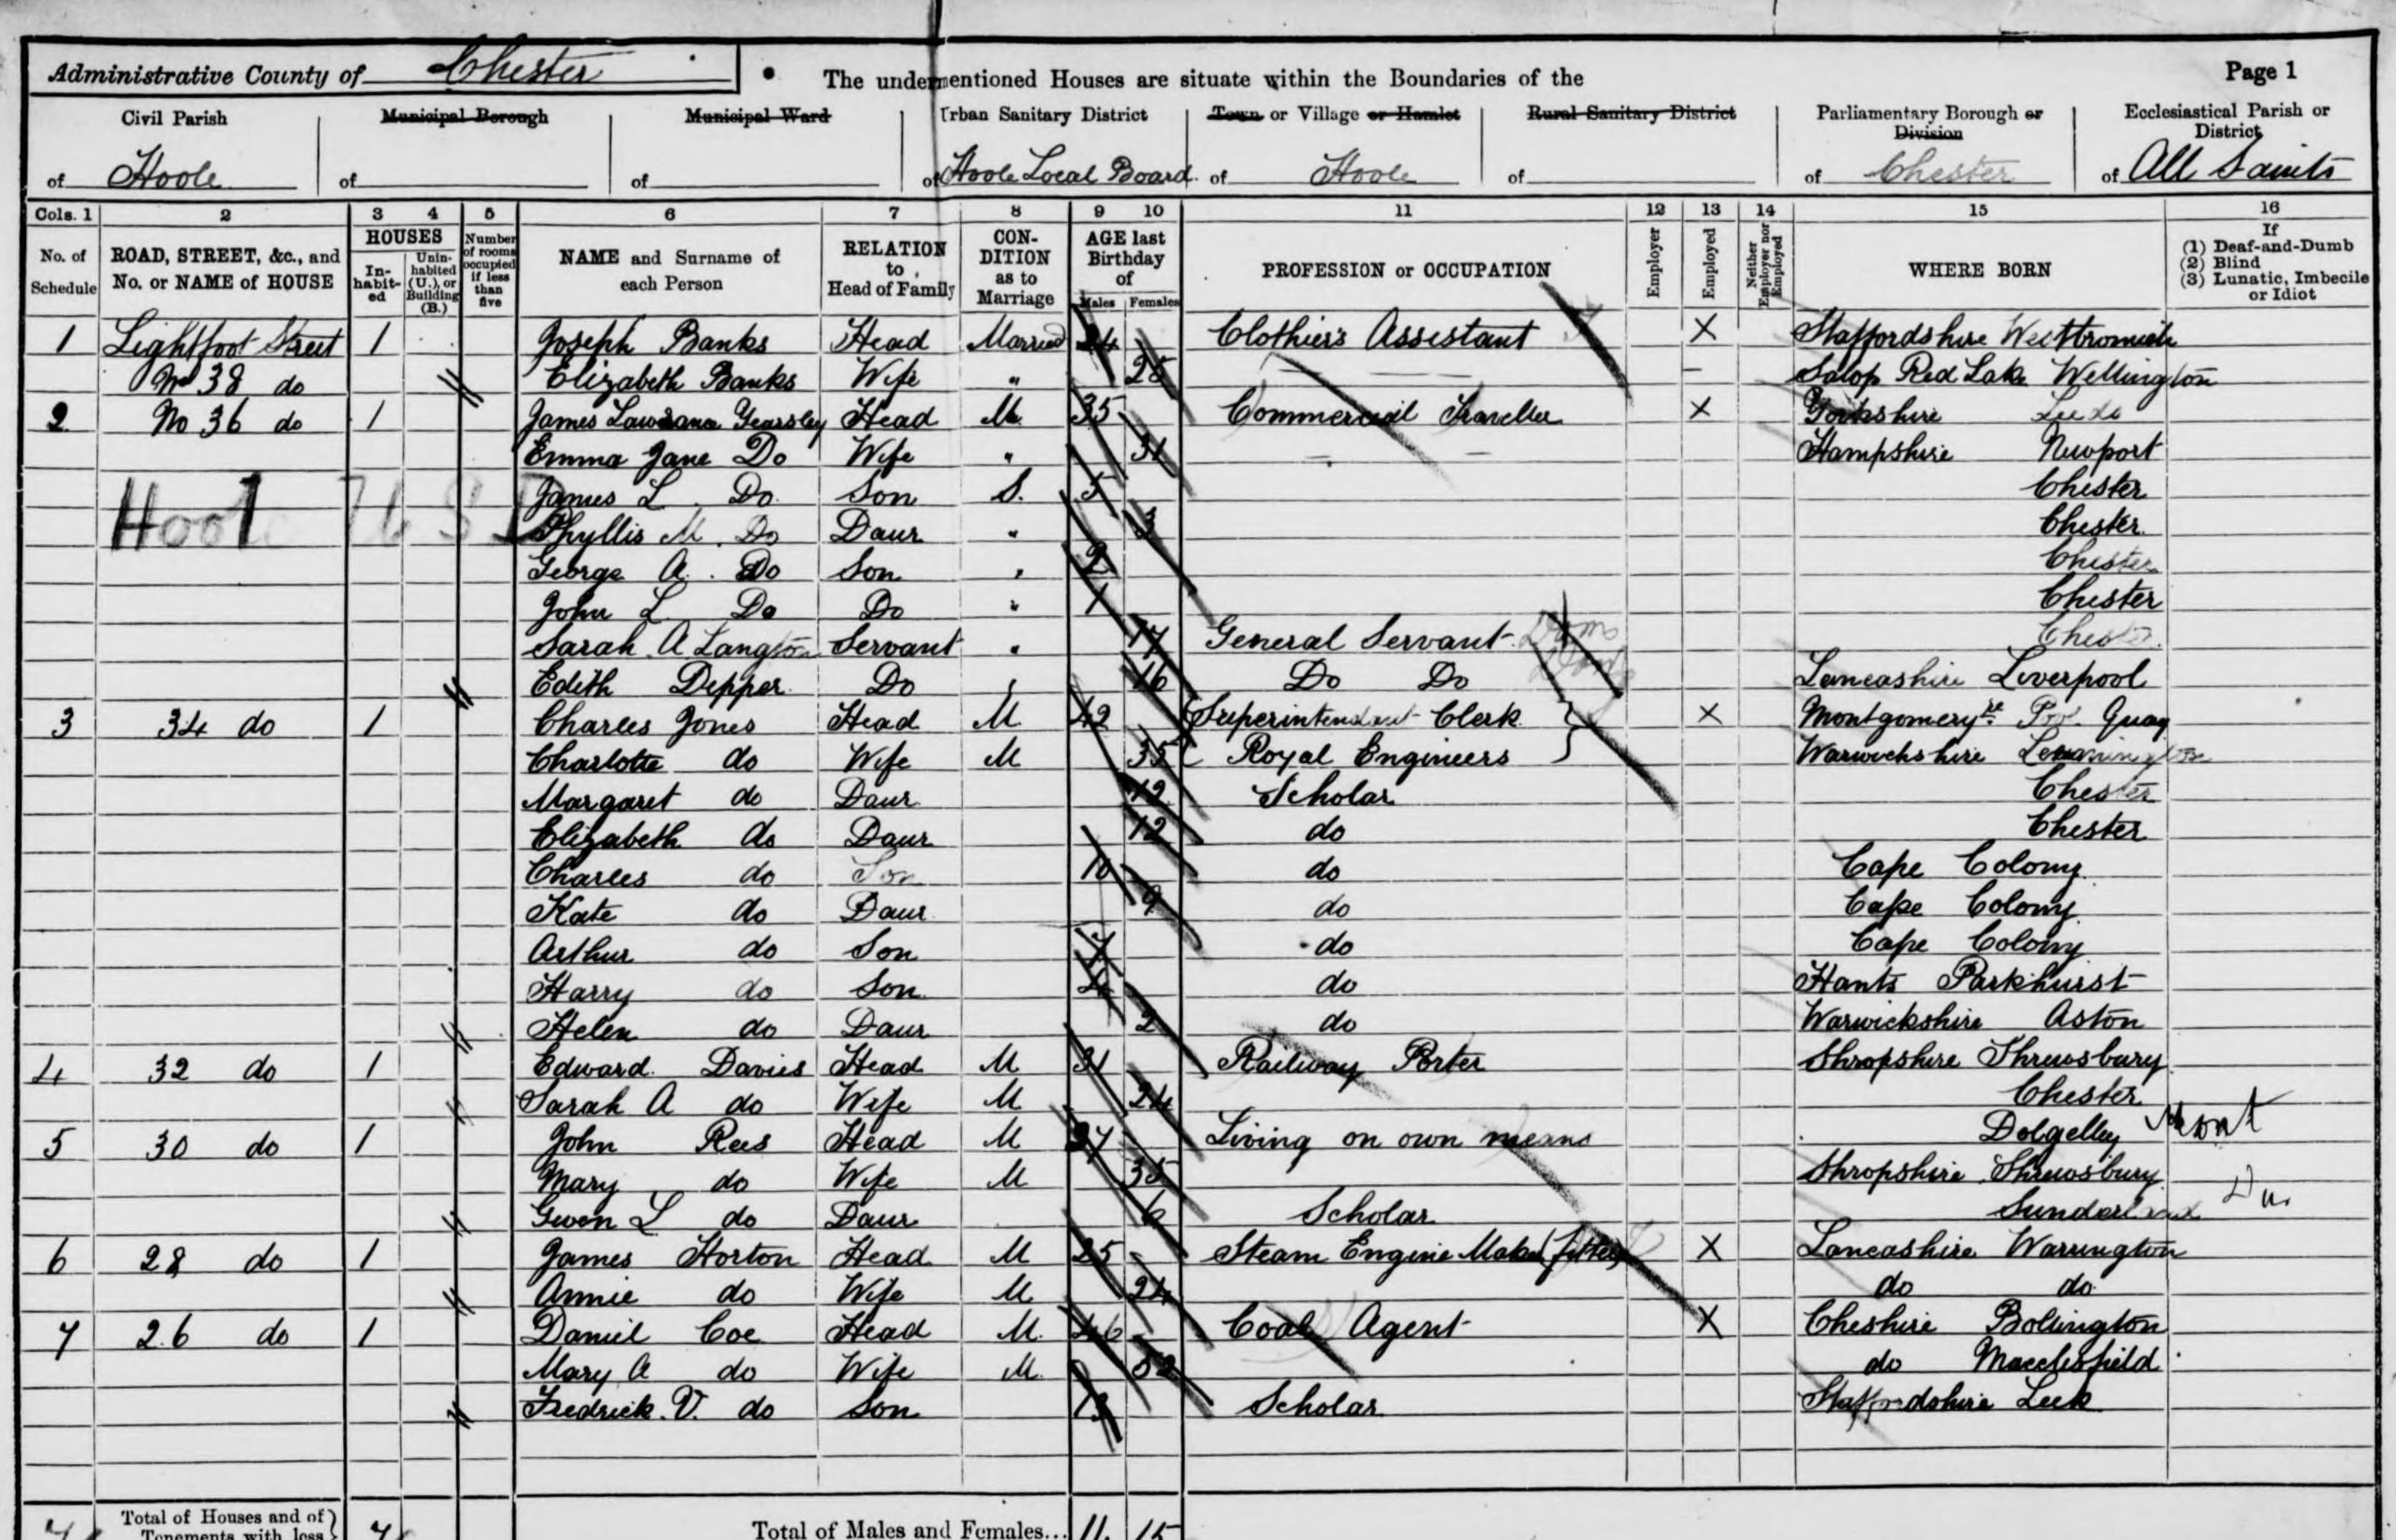 Administrative County of Chester
The undermentioned Houses are situate within the Boundaries of the
Page 1
Civil Parish of Hoole
Municipal Borough of
Municipal Ward of
Urban Sanitary District of Hoole Local Board
Town or Village or Hamlet of Hoole
Rural Sanitary District of
Parliamentary Borough or Division of Chester
Ecclesiastical Parish or District of All Saints
Cols. 1 2 3 4 5 6 7 8 9 10 11 12 13 14 15 16
No. of Schedule
ROAD, STREET, &c., and No. or NAME of HOUSE
HOUSES
In-habit-ed
Unin-habited (U.), or Building (B.)
Number of rooms occupied if less than five
NAME and Surname of each Person
RELATION to Head of Family
CON-DITION as to Marriage
AGE last Birthday of
Males Females
PROFESSION or OCCUPATION
Employer
Employed
Neither Employer nor Employed
WHERE BORN
If
(1) Deaf-and-Dumb
(2) Blind
(3) Lunatic, Imbecile or Idiot
1 Lightfoot Street 1 Joseph Banks Head Married 24 Clothier's Assistant X Staffordshire Westbromich
No 38 do Elizabeth Banks Wife " 25 Salop Red Lake Wellington
2 No 36 do 1 James Yearsley Head M 35 Commercial Traveller X Yorkshire Leeds
Emma Jane Do Wife " 31 Hampshire Newport
James L Do Son S. 5 Chester
Phyllis M. Do Daur " 3 Chester
George A. Do Son " 2 Chester
John L Do Do " 1 Chester
Sarah A Langton Servant " 17 General Servant Dom Chester
Edith Depper Do " 16 Do Do Lancashire Liverpool
Hoole U S D
3 34 do 1 Charles Jones Head M 42 Superintendent Clerk X Montgomery Quay
Charlotte do Wife M 35 Royal Engineers Warwickshire Leamington
Margaret do Daur 12 Scholar Chester
Elizabeth do Daur 12 do Chester
Charles do Son 10 do Cape Colony
Kate do Daur 9 do Cape Colony
Arthur do Son 7 do Cape Colony
Harry do Son 4 do Hants Parkhurst
Helen do Daur 2 do Warwickshire Aston
4 32 do 1 Edward Davies Head M 31 Railway Porter Shropshire Shrewsbury
Sarah A do Wife M 24 Chester
5 30 do 1 John Rees Head M 37 Living on own means Dolgelley Mont
Mary do Wife M 35 Shropshire Shrewsbury
Gwen L do Daur 6 Scholar Sunderland Du
6 28 do 1 James Horton Head M 25 Steam Engine Maker (fitter) X Lancashire Warrington
Annie do Wife M 24 do do
7 26 do 1 Daniel Coe Head M. 46 Coal Agent X Cheshire Bollington
Mary A do Wife M. 52 do Macclesfield
Fredrick. V. do Son 13 Scholar Staffordshire Leek
7 Total of Houses and of Tenements with less 7 Total of Males and Females... 11 15